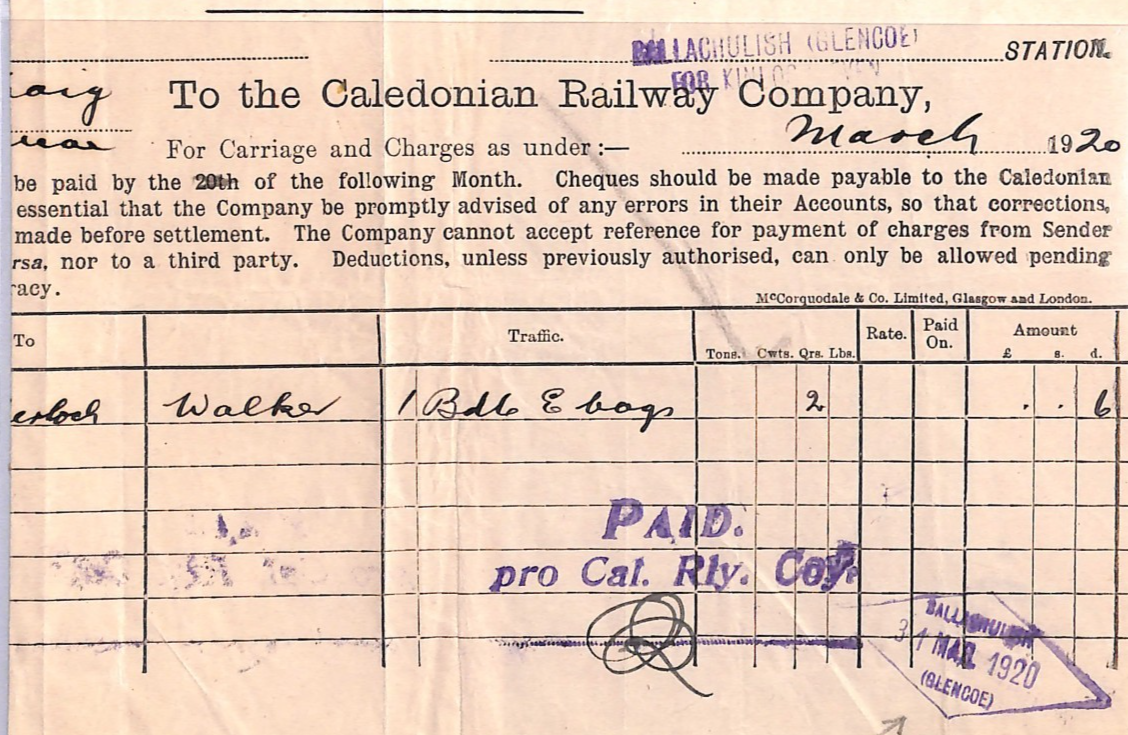 BALLACHULISH (GLENCOE) STATION.
FOR KINLOCHLEVEN
To the Caledonian Railway Company,
For Carriage and Charges as under :— March 1920
be paid by the 20th of the following Month. Cheques should be made payable to the Caledonian
essential that the Company be promptly advised of any errors in their Accounts, so that corrections,
made before settlement. The Company cannot accept reference for payment of charges from Sender
rsa, nor to a third party. Deductions, unless previously authorised, can only be allowed pending
racy.
McCorquodale & Co. Limited, Glasgow and London.
To Traffic. Tons. Cwts. Qrs. Lbs. Rate. Paid On. Amount £ s. d.
erloch Walker 1 Bdl E bags 2 . . 6
PAID.
pro Cal. Rly. Coy.
BALLACHULISH
31 MAR 1920
(GLENCOE)